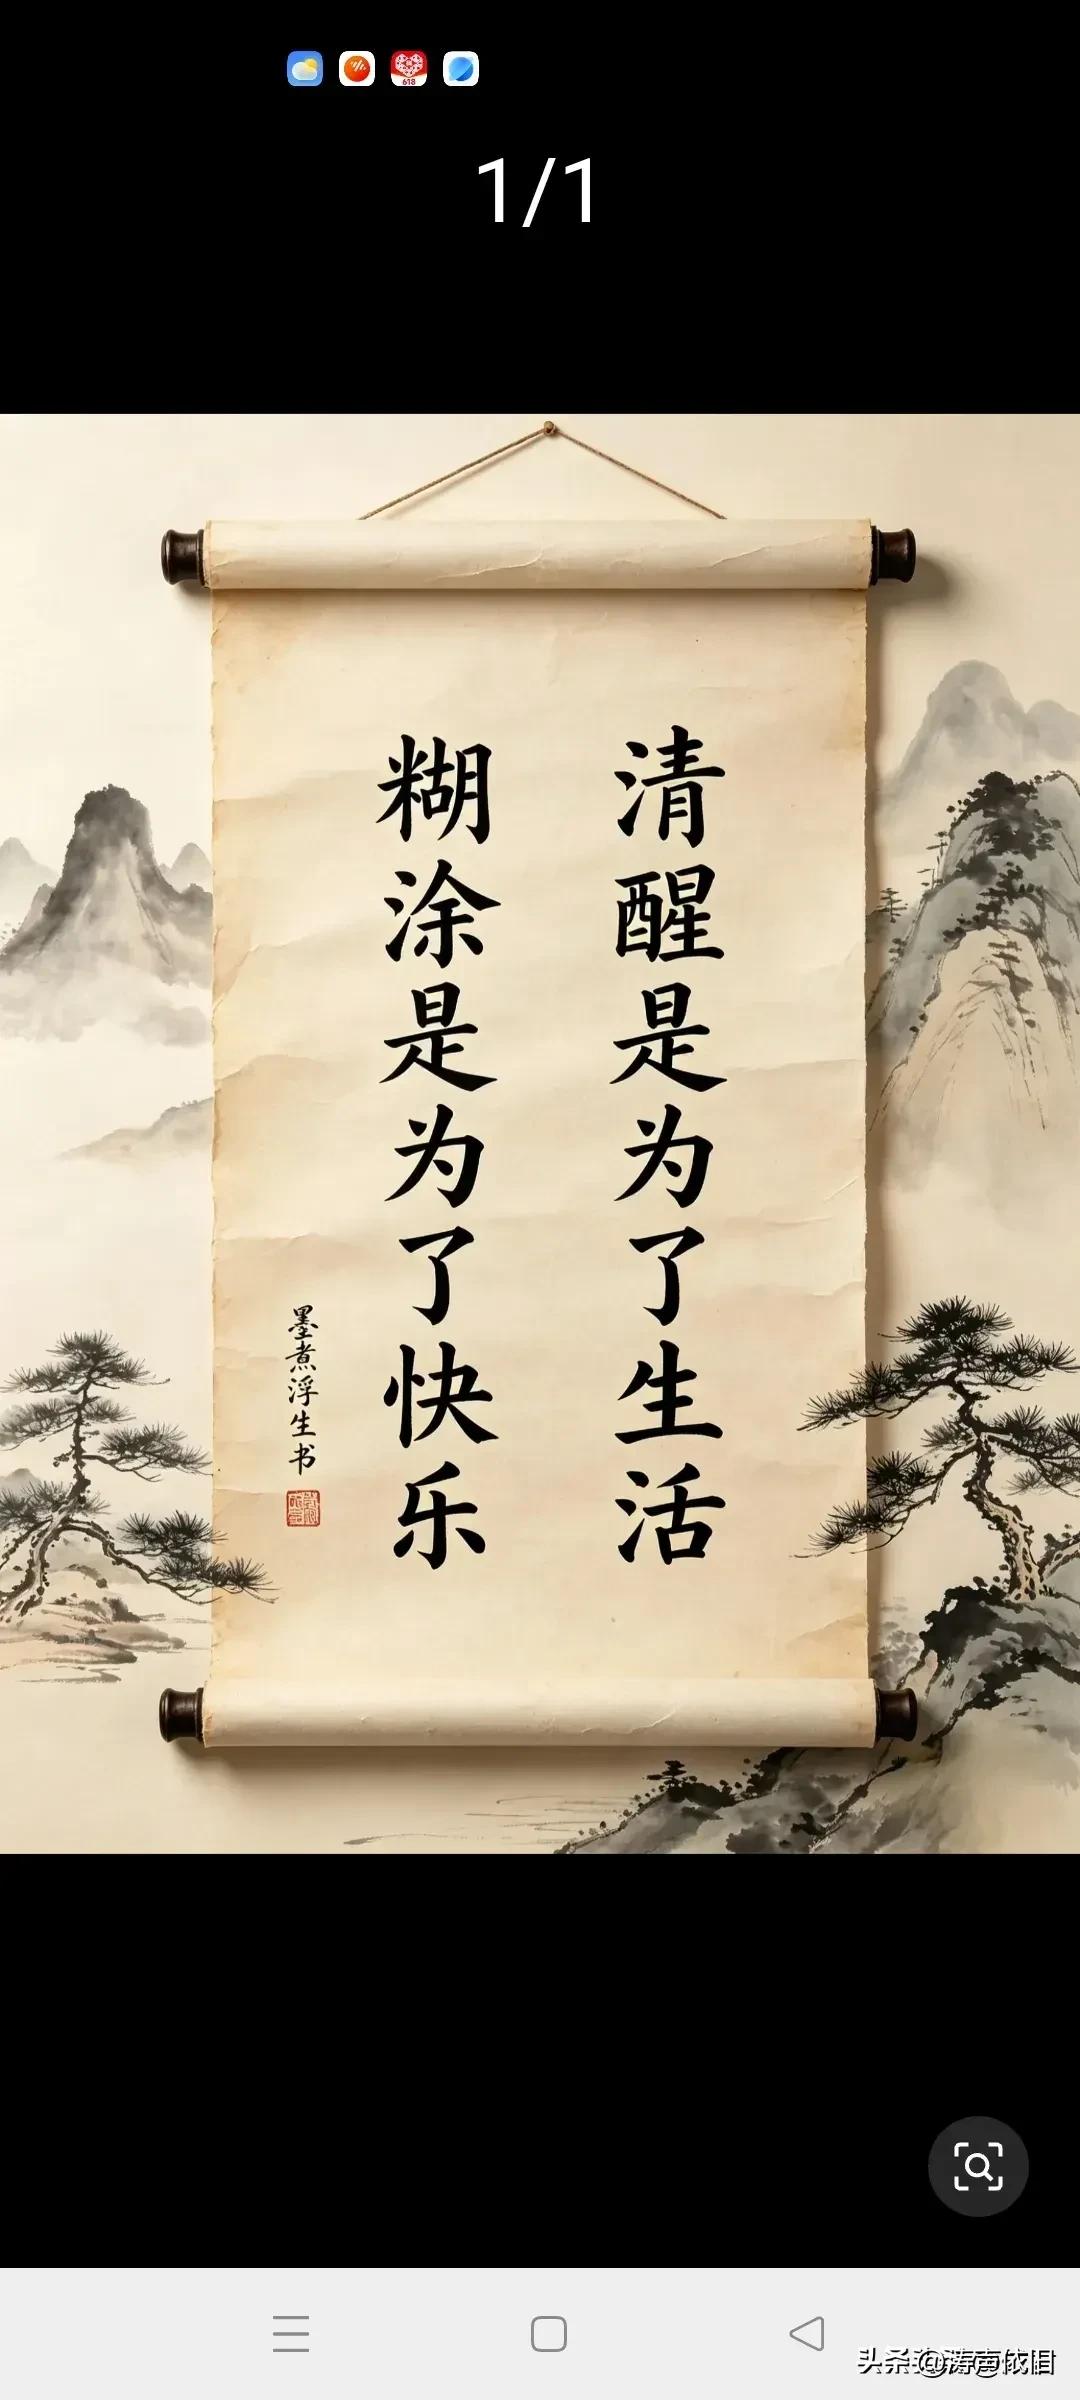 1/1
清醒是为了生活
糊涂是为了快乐
墨煮浮生书
618
头条@涛声依旧